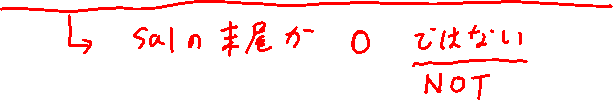 ↳ salの末尾が 0 ではない
NOT